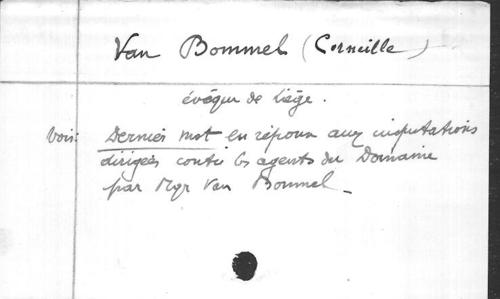 Van Bommel (Corneille)
évêque de Liège.
Vois: Dernier mot en réponse aux imputations
dirigées contre les agents du Domaine
par Mgr Van Bommel_